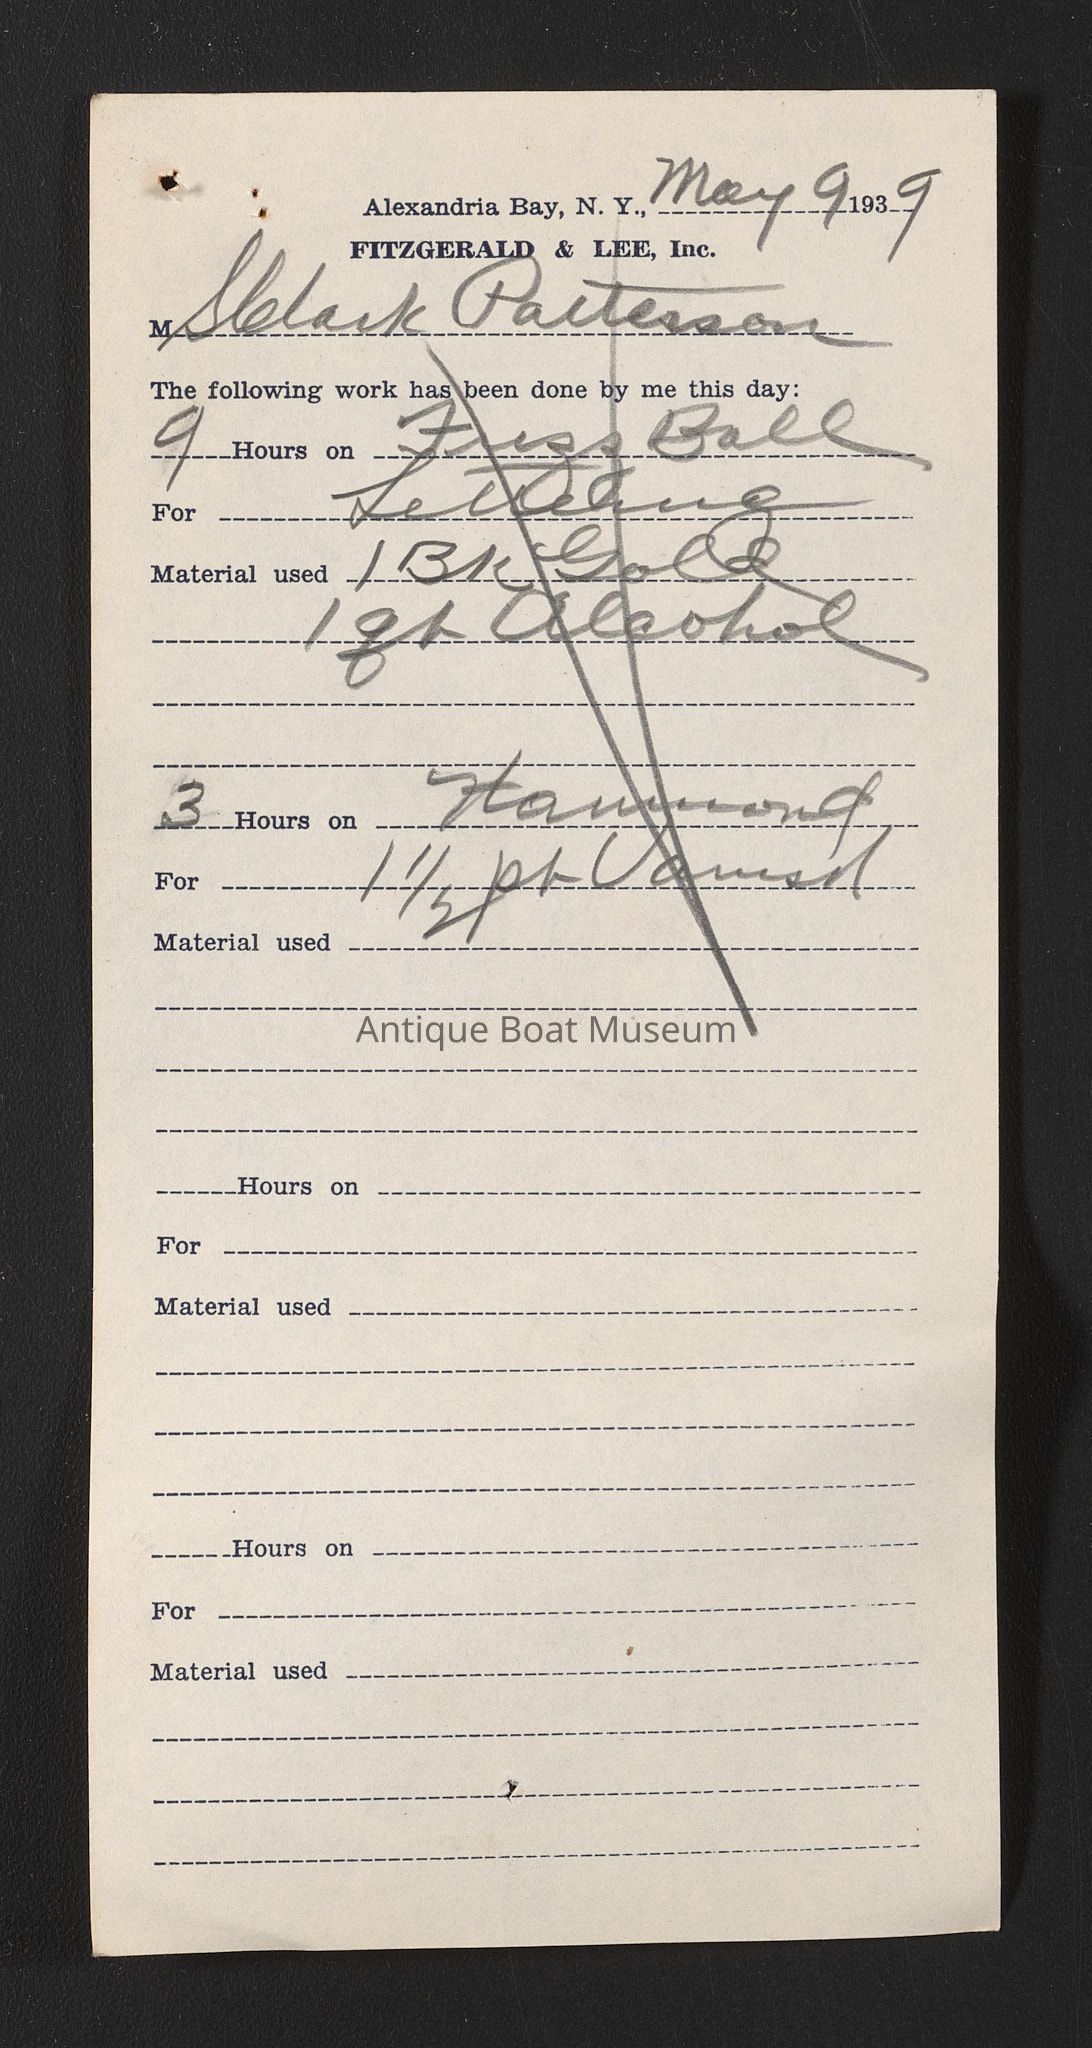 Alexandria Bay, N. Y., May 9 1939
FITZGERALD & LEE, Inc.
M Clark Patterson
The following work has been done by me this day:
9 Hours on Fuzz Ball
For Lettering
Material used 1 Bk Gold
1 qt Alcohol
3 Hours on Hammond
For 1 1/2 pt Varnish
Material used
Antique Boat Museum
Hours on
For
Material used
Hours on
For
Material used